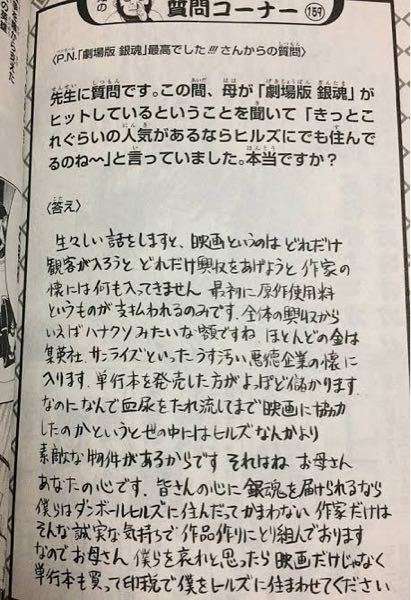 質問コーナー 159
〈P.N.「劇場版 銀魂」最高でした!!!さんからの質問〉
先生に質問です。この間、母が「劇場版 銀魂」が
ヒットしているということを聞いて「きっとこ
れぐらいの人気があるならヒルズにでも住んで
るのね〜」と言っていました。本当ですか?
〈答え〉
生々しい話をしますと、映画というのは どれだけ
観客が入ろうと どれだけ興収をあげようと 作家の
懐には何も入ってきません 最初に原作使用料
というものが支払われるのみです. 全体の興収から
いえばハナクソみたいな額ですね. ほとんどの金は
集英社 サンライズといったうす汚い悪徳企業の懐に
入ります. 単行本を発売した方がよっぽど儲かります.
なのになんで血尿をたれ流してまで映画に協力
したのかというと世の中にはヒルズなんかより
素敵な物件があるからです それはね お母さん
あなたの心です. 皆さんの心に銀魂を届けられるなら
僕らはダンボールヒルズに住んだってかまわない 作家だけは
そんな誠実な気持ちで作品作りにとり組んでおります
なのでお母さん 僕らを哀れと思ったら映画だけじゃなく
単行本も買って印税で僕をヒルズに住まわせてください